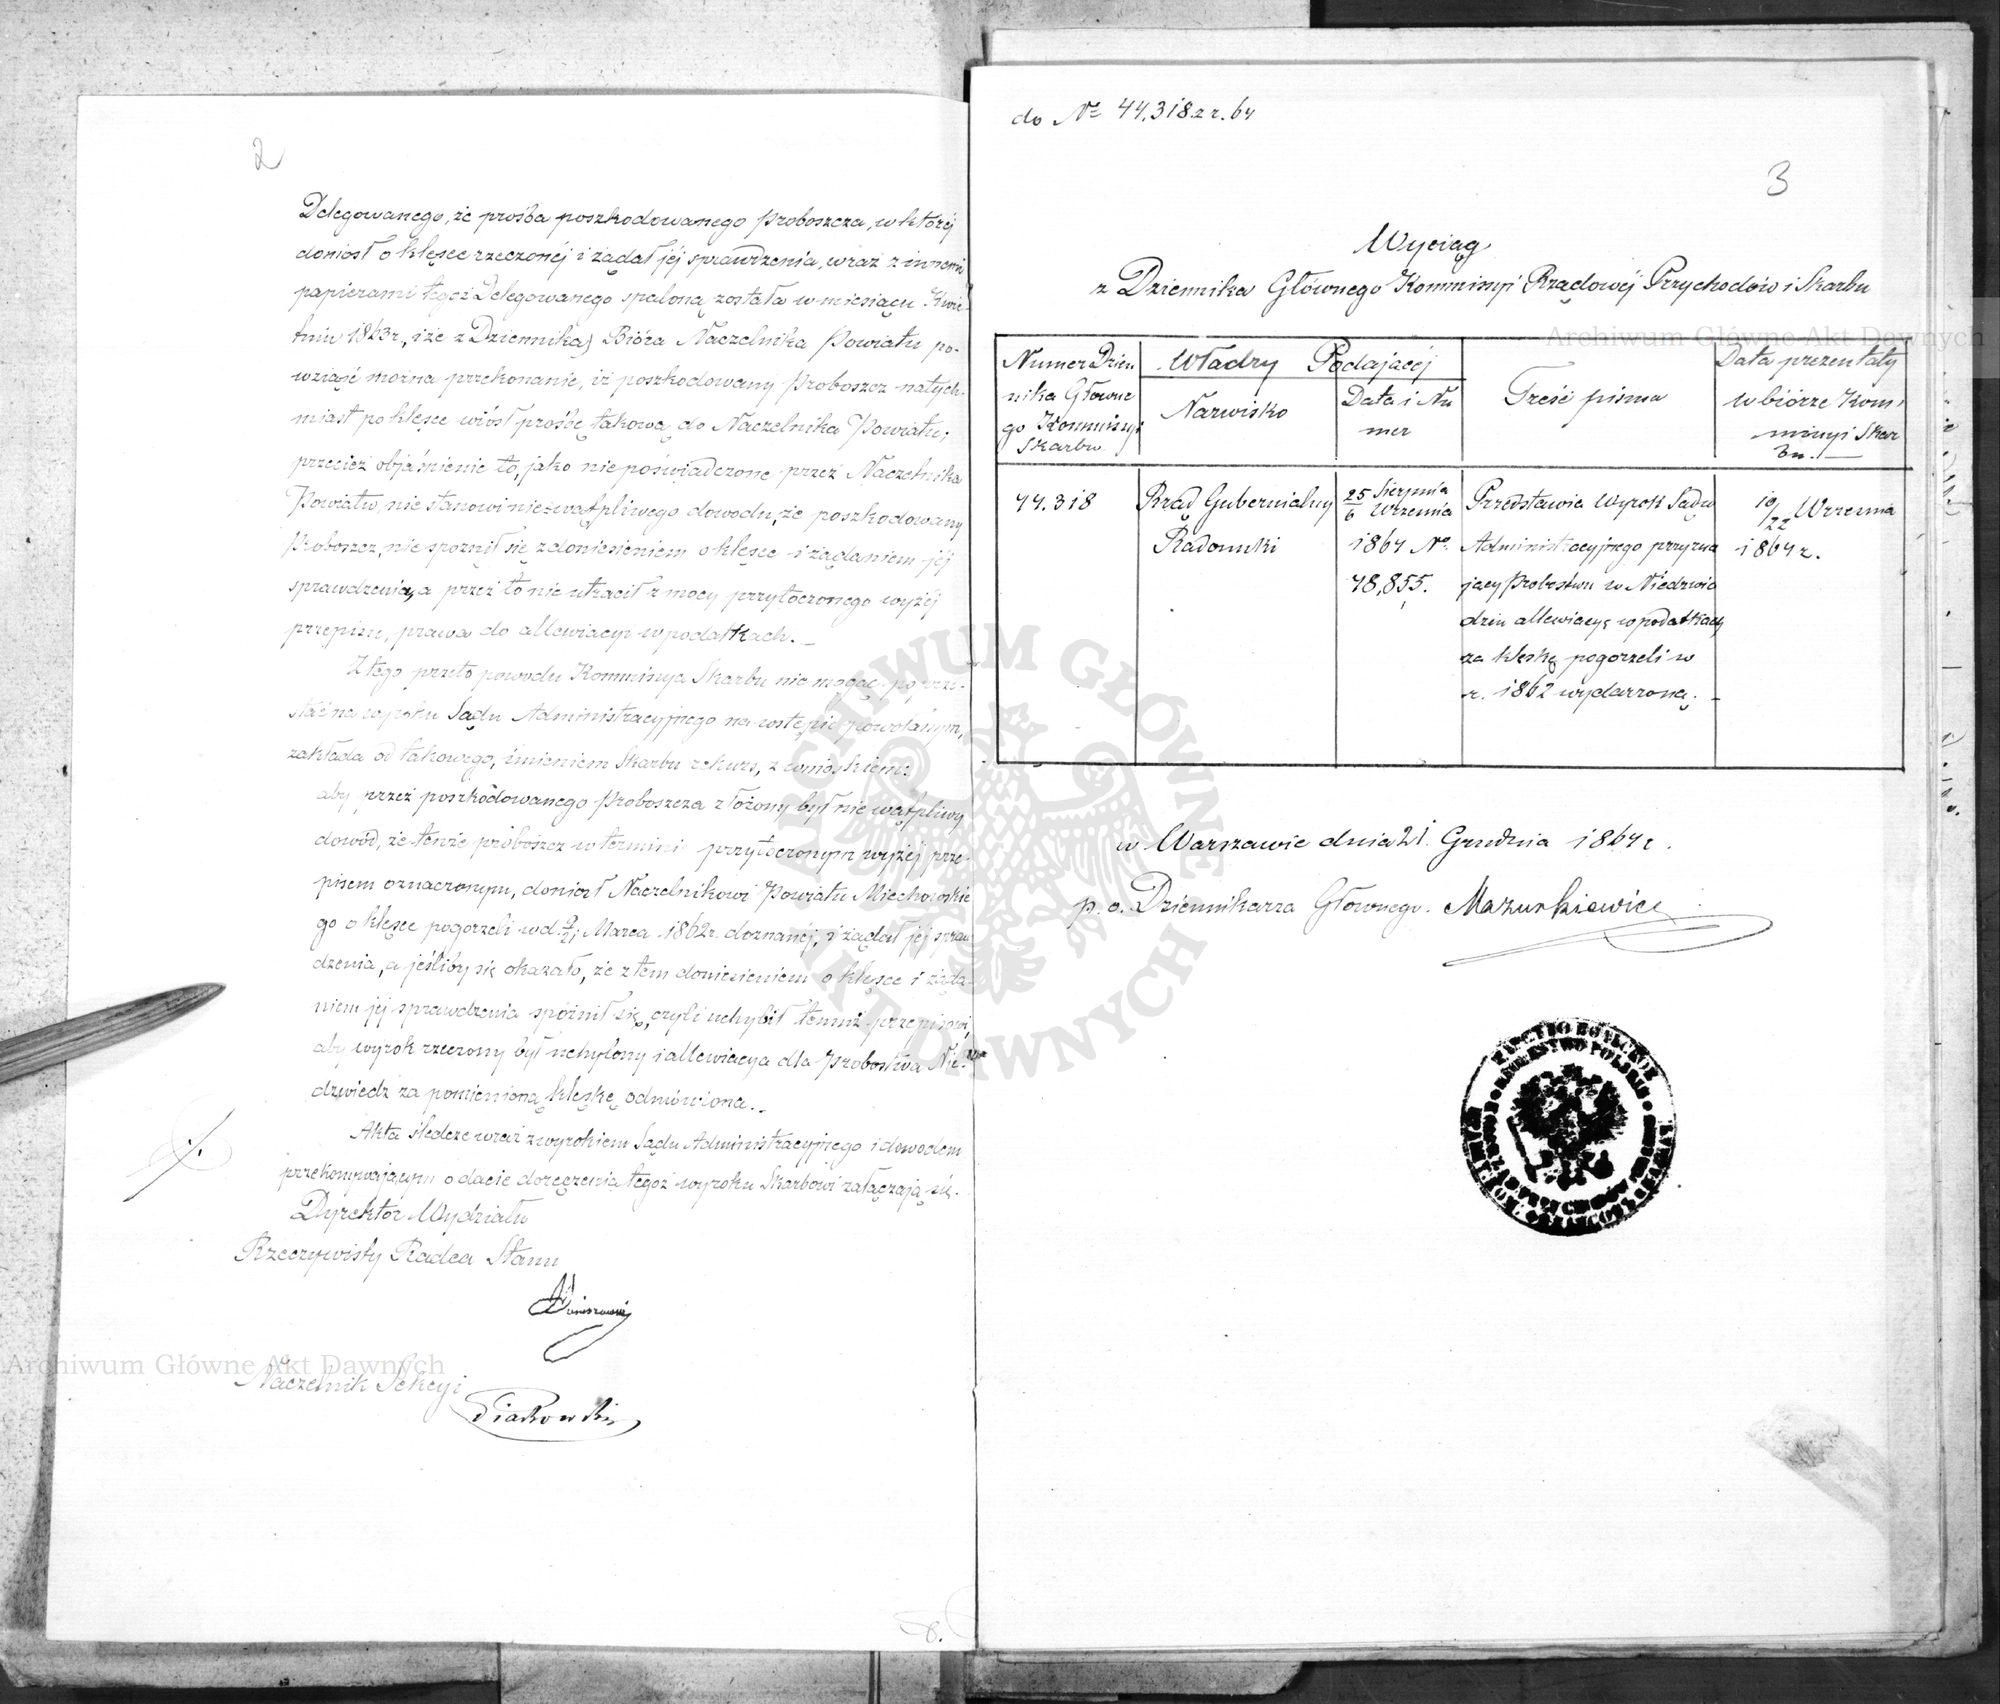 2
Delegowanego, że prośba poszkodowanego Proboszcza, w której
doniosł o klęsce rzeczonéj i żądał jéj sprawdzenia, wraz z innemi
papierami tegoż Delegowanego spaloną została w miesiącu Kwie-
tniu 1863 r., i że z Dziennika Bióra Naczelnika Powiatu po-
wziąść można przekonanie, iż poszkodowany Proboszcz natych-
miast po klęsce wiósł prośbę takową do Naczelnika Powiatu;
przecież objaśnienie to, jako nie poświadczone przez Naczelnika
Powiatu, nie stanowi niewątpliwego dowodu, że poszkodowany
Proboszcz, nie spoznił się z doniesieniem o klęsce i żądaniem jéj
sprawdzenia, a przez to nie utracił z mocy przytoczonego wyżéj
przepisu, prawa do allewiacyi w podatkach. _
Z tego przeto powodu Kommissya Skarbu nie mogąc poprze-
stać na wyroku Sądu Administracyjnego na wstępie powołanym,
zakłada od takowego, imieniem Skarbu rekurs, z wnioskiem:
aby przez poszkodowanego Proboszcza złożony był niewątpliwy
dowód, że tenże proboszcz w termini przytoczonym wyżéj prze-
pisem oznaczonym, doniosł Naczelnikowi Powiatu Miechowskie
go o klęsce pogorzeli w d. 9/21 Marca 1862 r. doznanéj, i żądał jéj spraw
dzenia, a jeśliby się okazało, że z tem doniesieniem o klęsce i żąda-
niem jéj sprawdzenia spóźnił się, czyli uchybił temuż przepisowi,
aby wyrok rzeczony był uchylony i allewiacya dla Probostwa Nie-
dzwiedź za pomienioną klęskę odmówiona. _
Akta śledcze wraz z wyrokiem Sądu Administracyjnego i dowodem
przekonywającym o dacie doręczenia tegoż wyroku Skarbowi załączają się.
Dyrektor Wydziału
Rzeczywisty Radca Stanu
Naczelnik Sekcyi
Piakowski
8.
do No 44,318 z r. 64
3
Wyciąg
z Dziennika Głównego Kommissyi Rządowéj Przychodów i Skarbu
Numer Dzien
nika Główne
go Kommissyi
Skarbu
Władzy Podającéj
Nazwisko
Data i Nu
mer
Treść pisma
Data prezentaty
w biórze Kom,
missyi Skar
bu. _
44.318
Rząd Gubernialny
Radomski
25/6 Sierpnia Września
1864 No
48,855.
Przedstawia Wyrok Sądu
Administracyjnego przyzna
jący Probostwu w Niedzwie
dziu allewiacyę w podatkach
za klęskę pogorzeli w
r. 1862 wydarzoną. _
10/22 Września
1864 r.
w Warszawie dnia 21 Grudnia 1864 r.
p. o. Dziennikarza Głównego. Mazurkiewicz
KROLESTWO POLSKIE
Archiwum Główne Akt Dawnych
Archiwum Główne Akt Dawnych
ARCHIWUM GŁÓWNE AKT DAWNYCH